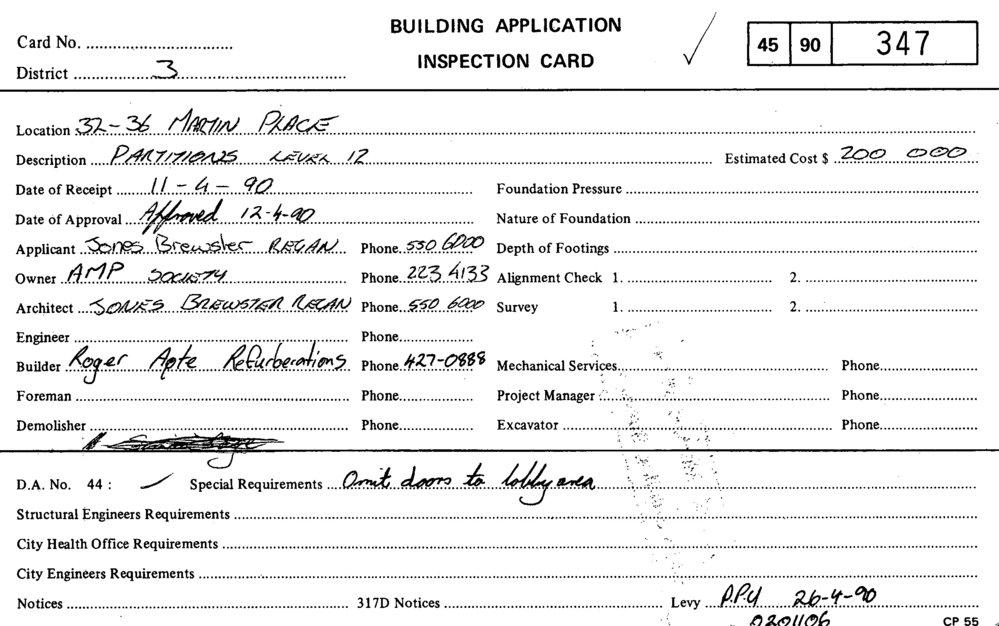 BUILDING APPLICATION
INSPECTION CARD
45 90 347
Card No.
District 3
Location 32-36 MARTIN PLACE
Description PARTITIONS LEVEL 12 Estimated Cost $ 200 000
Date of Receipt 11-4-90 Foundation Pressure
Date of Approval Approved 12-4-90 Nature of Foundation
Applicant Jones Brewster REGAN Phone 550 6000 Depth of Footings
Owner AMP SOCIETY Phone 223 4133 Alignment Check 1. 2.
Architect JONES BREWSTER REGAN Phone 550 6000 Survey 1. 2.
Engineer Phone
Builder Roger Apte Refurberations Phone 427-0888 Mechanical Services Phone
Foreman Phone Project Manager Phone
Demolisher Phone Excavator Phone
D.A. No. 44 : Special Requirements Omit doors to lobby area
Structural Engineers Requirements
City Health Office Requirements
City Engineers Requirements
Notices 317D Notices Levy 26-4-90
0201106 CP 55